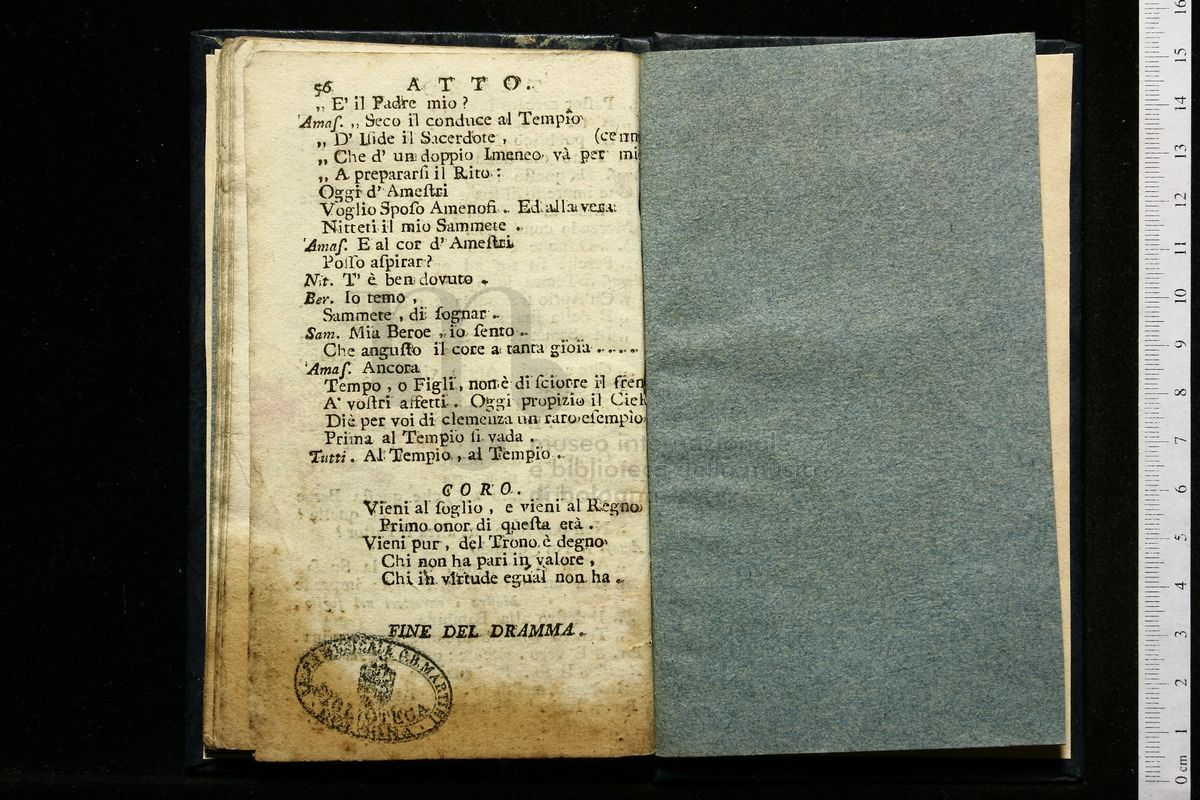 56 ATTO.
„ E' il Padre mio?
Amaſ. „ Seco il conduce al Tempio
„ D' Iſide il Sacerdote, (cenno
„ Che d' un doppio Imeneo và per mio
„ A prepararſi il Rito:
Oggi d' Ameſtri
Voglio Spoſo Amenofi. Ed alla vera
Nitteti il mio Sammete.
Amaſ. E al cor d' Ameſtri
Poſſo aſpirar?
Nit. T' è ben dovuto.
Ber. Io temo,
Sammete, di ſognar.
Sam. Mia Beroe, io ſento
Che anguſto il core a tanta gioia .....
Amaſ. Ancora
Tempo, o Figli, non è di ſciorre il fren
A' voſtri affetti. Oggi propizio il Ciel
Diè per voi di clemenza un raro eſempio
Prima al Tempio ſi vada.
Tutti. Al Tempio, al Tempio.
CORO.
Vieni al ſoglio, e vieni al Regno
Primo onor di queſta età.
Vieni pur, del Trono è degno
Chi non ha pari in valore,
Chi in virtude egual non ha.
FINE DEL DRAMMA.
G.B. MARTINI
BIBLIOTECA
museo internazionale
e biblioteca della musica
di bologna
0 cm 1 2 3 4 5 6 7 8 9 10 11 12 13 14 15 16